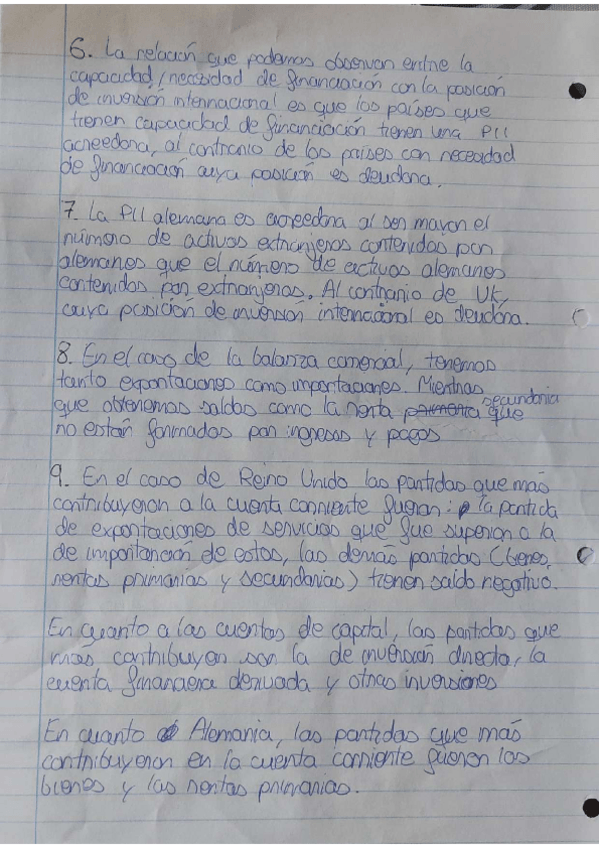 6. La relación que podemos observar entre la
capacidad/necesidad de financiación con la posición
de inversión internacional es que los países que
tienen capacidad de financiación tienen una PII
acreedora, al contrario de los países con necesidad
de financiación cuya posición es deudora.
7. La PII alemana es acreedora al ser mayor el
número de activos extranjeros contenidos por
alemanes que el número de activos alemanes
contenidos por extranjeros. Al contrario de UK,
cuya posición de inversión internacional es deudora.
8. En el caso de la balanza comercial, tenemos
tanto exportaciones como importaciones. Mientras
que obtenemos saldos como la renta secundaria que
no están formados por ingresos y pagos
9. En el caso de Reino Unido las partidas que más
contribuyeron a la cuenta corriente fueron: la partida
de exportaciones de servicios que fue superior a la
de importanción de estos, las demás partidas (bienes,
rentas primarias y secundarias) tienen saldo negativo.
En cuanto a las cuentas de capital, las partidas que
más contribuyen son la de inversión directa, la
cuenta financiera derivada y otras inversiones
En cuanto a Alemania, las partidas que más
contribuyeron en la cuenta corriente fueron los
bienes y las rentas primarias.